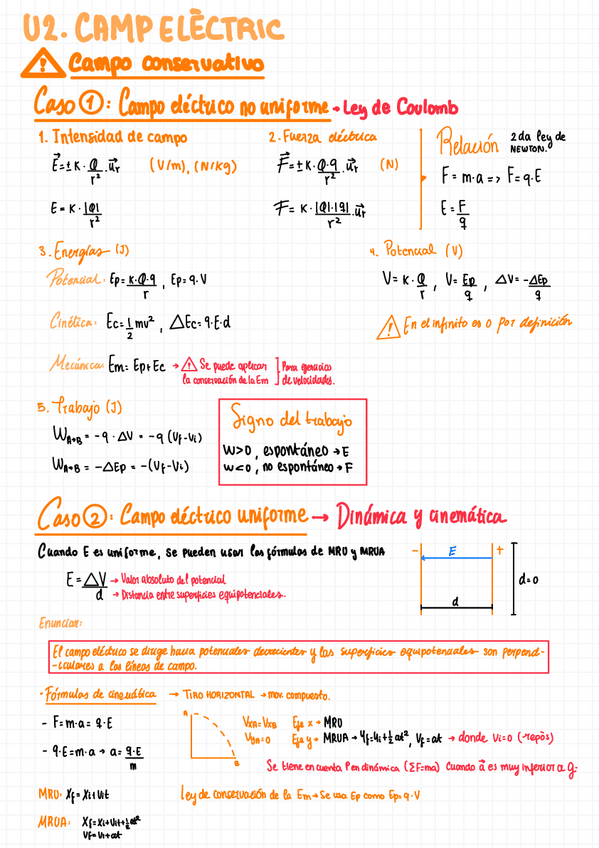 U2. CAMP ELÈCTRIC
⚠ Campo conservativo
Caso ①: Campo eléctrico no uniforme → Ley de Coulomb
1. Intensidad de campo
E⃗ = ± K · Q/r² · u⃗r (V/m), (N/Kg)
E = K · |Q|/r²
2. Fuerza eléctrica
F⃗ = ± K · Q·q/r² · u⃗r (N)
F = K · |Q|·|q|/r² · u⃗r
Relación 2da ley de NEWTON.
F = m·a => F = q·E
E = F/q
3. Energías (J)
Potencial: Ep = K·Q·q/r , Ep = q·V
Cinética: Ec = 1/2 mv² , △Ec = q·E·d
Mecánica: Em = Ep + Ec → ⚠ Se puede aplicar la conservación de la Em ] Para ejercicio de velocidades.
4. Potencial (V)
V = K · Q/r , V = Ep/q , △V = -△Ep/q
⚠ En el infinito es 0 por definición
5. Trabajo (J)
W A→B = -q · △V = -q (Vf-Vi)
W A→B = -△Ep = -(Vf-Vi)
Signo del trabajo
W>0 , espontáneo → E
W<0 , no espontáneo → F
Caso ②: Campo eléctrico uniforme → Dinámica y cinemática
Cuando E es uniforme, se pueden usar las fórmulas de MRU y MRUA
E = △V/d → Valor absoluto del potencial
→ Distancia entre superficies equipotenciales.
- E +
d
d=0
Enunciar:
El campo eléctrico se dirige hacia potenciales decrecientes y las superficies equipotenciales son perpend-
-iculares a las líneas de campo.
· Fórmulas de cinemática → TIRO HORIZONTAL → mov. compuesto.
- F = m·a = q·E
- q·E = m·a → a = q·E/m
A
B
VxA = VxB Eje x → MRU
VyA = 0 Eje y → MRUA → Yf = Yi + 1/2 at² , Vf = at → donde Vi=0 (-repòs)
Se tiene en cuenta P en dinámica (ΣF=ma) cuando a⃗ es muy inferior a g.
MRU: Xf = Xi + Vit
Ley de conservación de la Em → Se usa Ep como Ep = q·V
MRUA: Xf = Xi + Vit + 1/2 at²
Vf = Vi + at